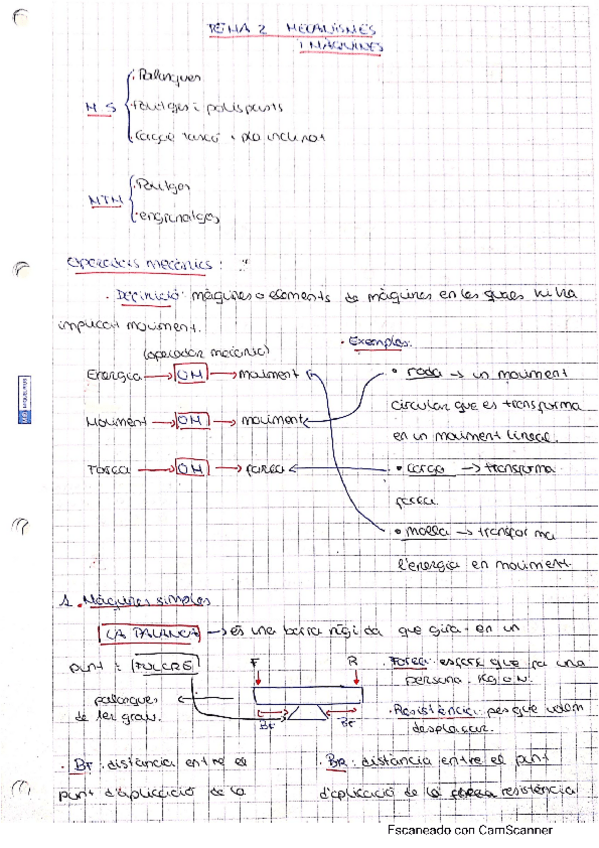 TEMA 2 MECANISMES
I MÀQUINES
MS
Palanques
Poulitges i polispasts
Cargol tascó i pla inclinat
MTM
Politges
engranatges
Operadors mecànics:
· Definició: màquines o elements de màquines en les quals hi ha
implicat moviment.
(operador mecànic)
· Exemples:
Energia → OM → moviment
· roda → un moviment
circular que es transforma
en un moviment lineal.
Moviment → OM → moviment
Força → OM → força
· → transforma
força.
· molla → transforma
l'energia en moviment.
1. Màquines simples
LA PALANCA → és una barra rígida que gira en un
punt: FULCRE
F
R
Força: esforç que fa una
persona. Kg o N.
palanques
de 1er grau.
BF
BR
· Resistència: pes que volem
desplaçar.
· BF: distància entre el
punt d'aplicació de la
· BR: distància entre el punt
d'aplicació de la força resistència
Escaneado con CamScanner